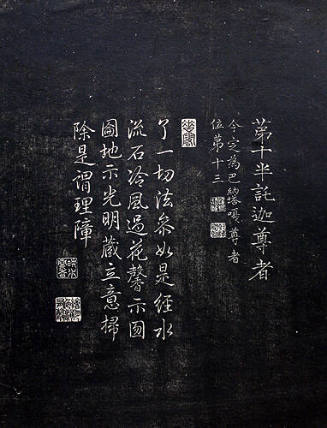 第十半託迦尊者
今定為巴納塔嘎尊者
位第十三
了一切法叅如是經水
流石冷風過花馨示因
圓地示光明藏立意掃
除是謂理障